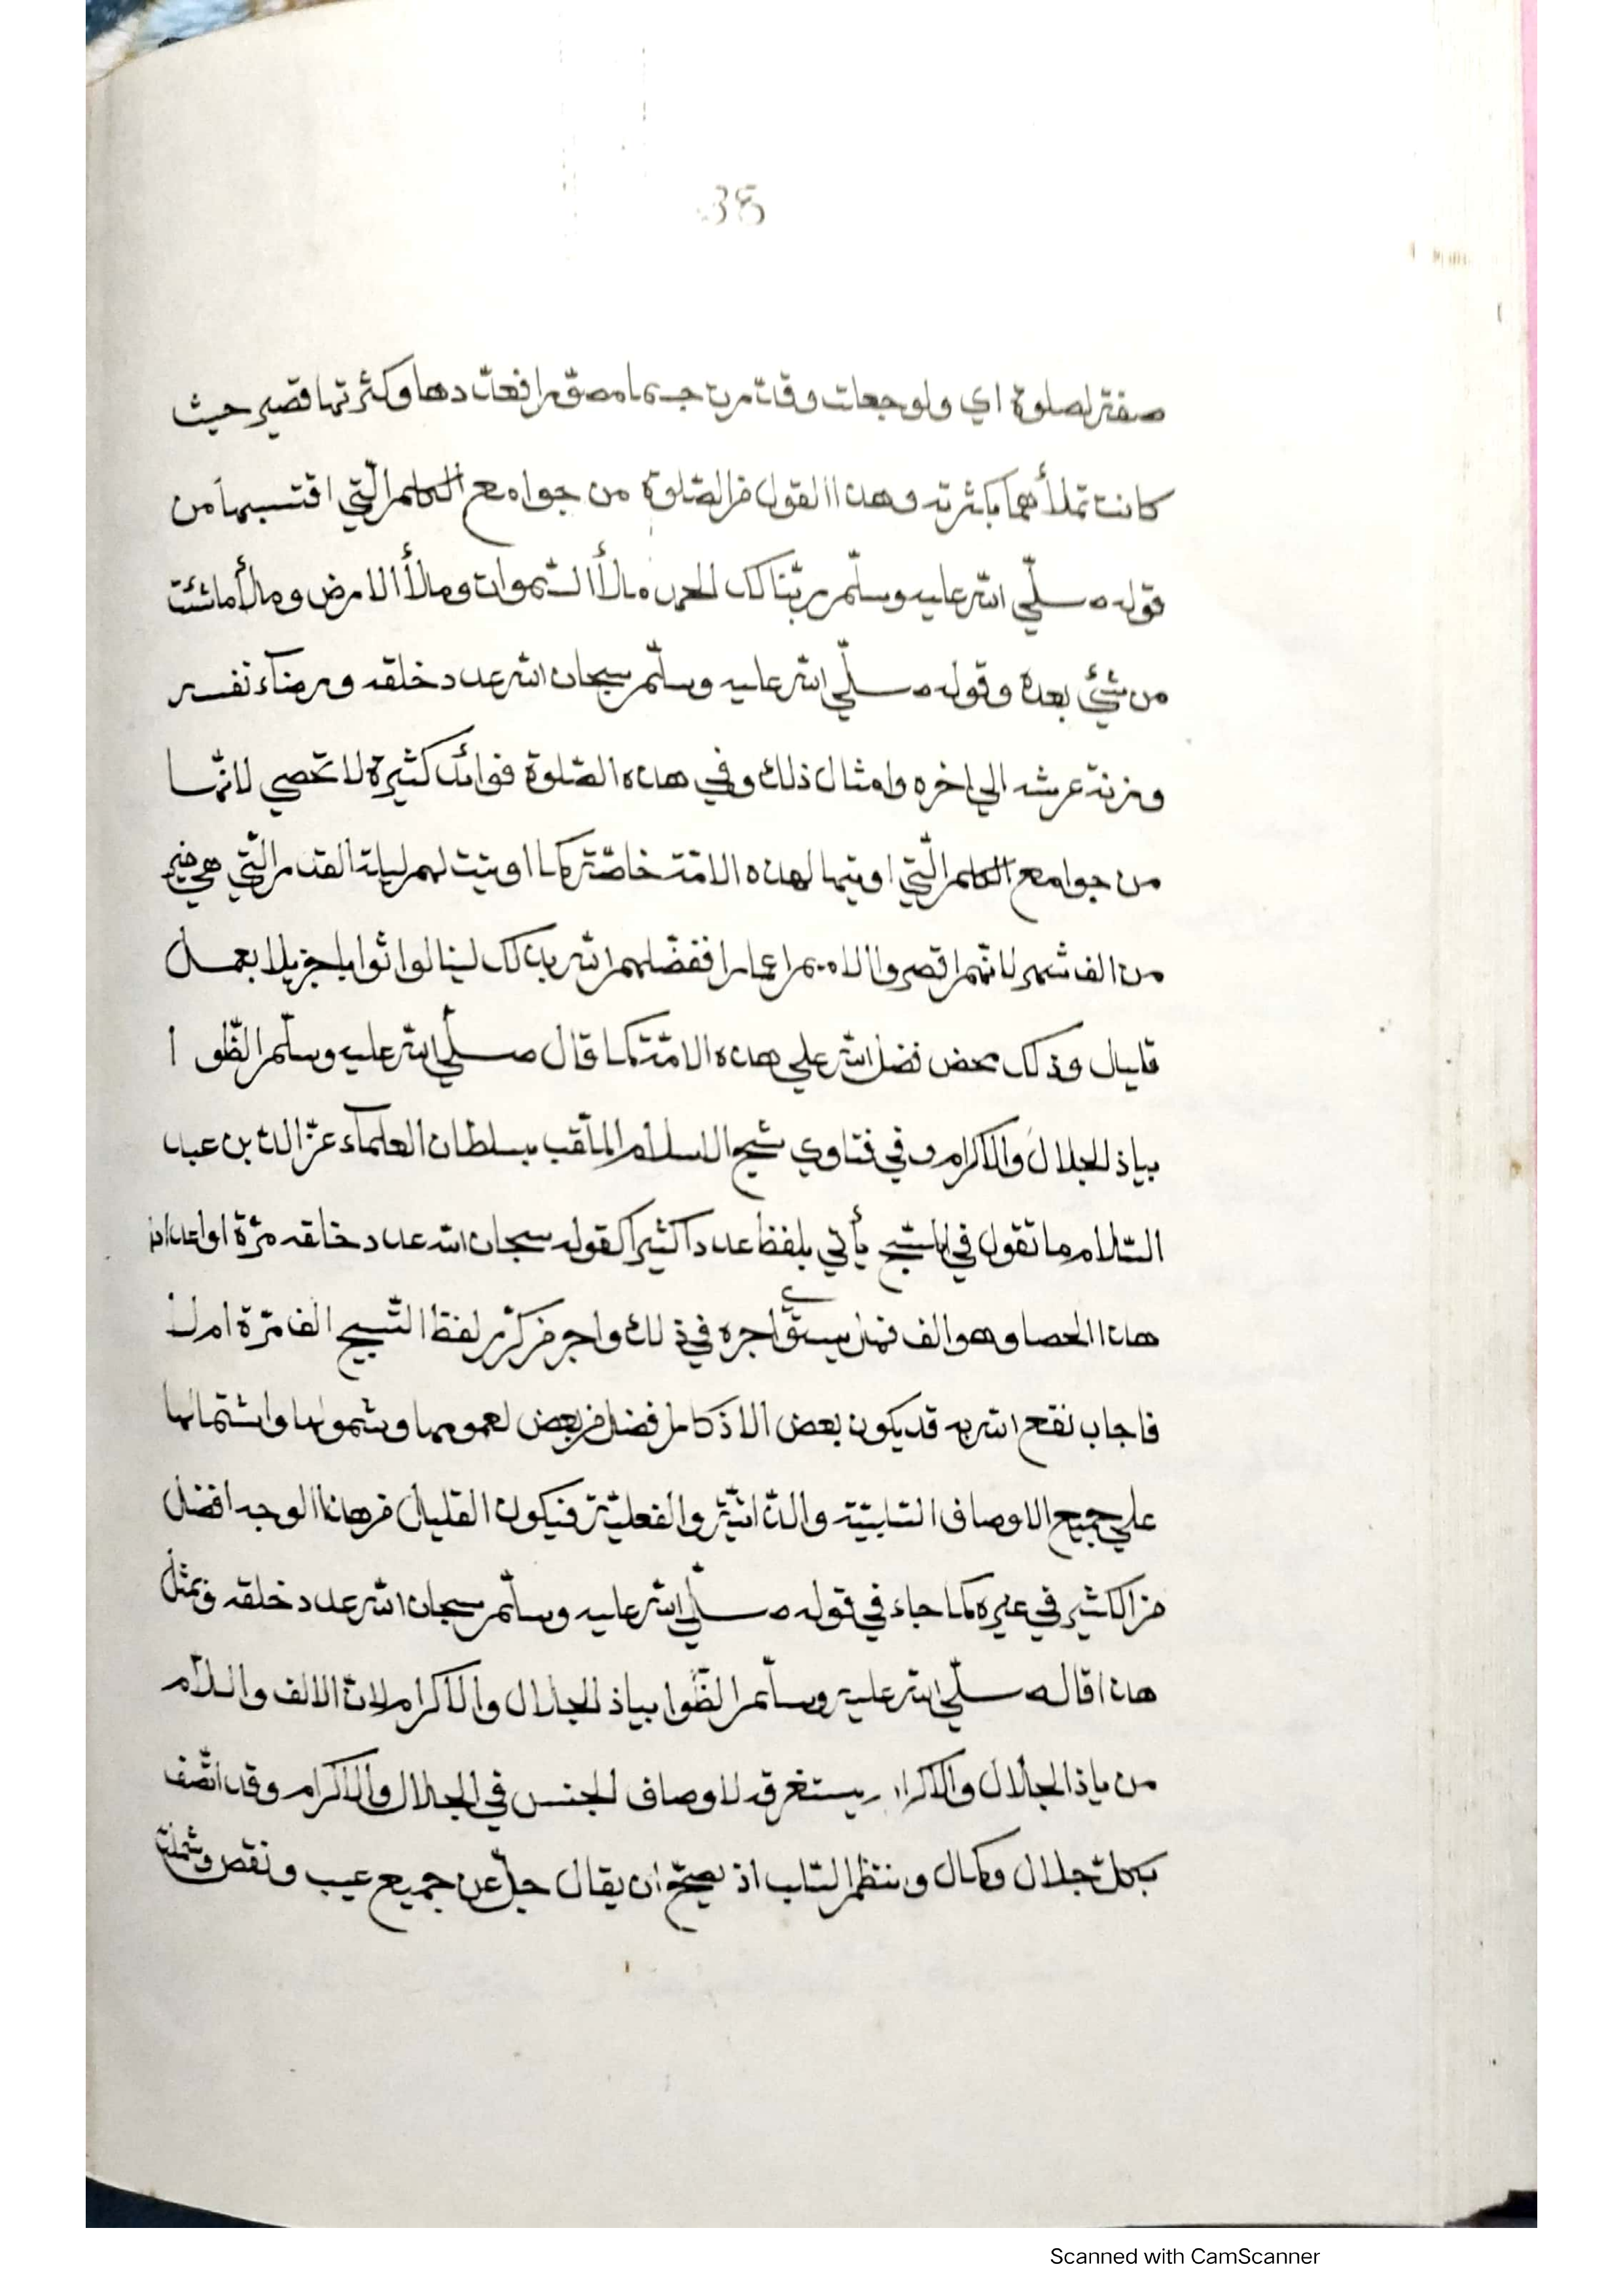 38
صفة لصلوة اي ولو جعلت وقات من جسما مصورا فعدّدها وكثرتها قصير حيث
كانت تملأهما بكثرته وهذا القول من الصّلوة من جوامع الكلم الّتي اقتسبها من
قوله صلّي الله عليه وسلّم ربّنا لك الحمد ملأ السّموات وملأ الارض وملأ ما شئت
من شئ بعده وقوله صلّي الله عليه وسلّم سبحان الله عدد خلقه ورضاء نفسه
وزنة عرشه الي اخره وامثال ذلك وفي هذه الصّلوة فوائد كثيرة لا تحصي لانّها
من جوامع الكلم الّتي اوتيها لهذه الامّة خاصّة كما اوتيت لهم ليلة القدر الّتي هي خير
من الف شهر لانّهم اقصر الامم اعمارا ففضّلهم الله بذلك لينالوا ثوابا جزيلا بعمل
قليل وذلك محض فضل الله علي هذه الامّة كما قال صلّي الله عليه وسلّم الظّو ا
بياذ الجلال والاكرام وفي فتاوي شيخ الاسلام الملقّب بسلطان العلمآء عزّ الدّين بن عبد
السّلام ما تقول في التّسبيح يأتي بلفظ عددا كثيرا كقوله سبحان الله عدد خلقه مرّة او اعداد
هذا الحصا وهو الف فهل يستوي اجره في ذلك واجر من كرّر لفظ التّسبيح الف مرّة ام لا
فاجاب نفع الله به قد يكون بعض الاذكار افضل من بعض لعمومها وشمولها واشتمالها
علي جميع الاوصاف السّلبيّة والذّاتيّة والفعليّة فيكون القليل من هذا الوجه افضل
من الكثير في غيره كما جاء في قوله صلّي الله عليه وسلّم سبحان الله عدد خلقه وبمثل
هذا قاله صلّي الله عليه وسلّم الظّوا بياذ الجلال والاكرام لانّ الالف والّلآم
من ياذا الجلال والاكرام يستغرقه لاوصاف الجنس في الجلال والاكرام وقد اتّصف
بكلّ جلال وكمال وينتظم السّلب اذ يصحّ ان يقال جلّ عن جميع عيب ونقص وشملت
Scanned with CamScanner